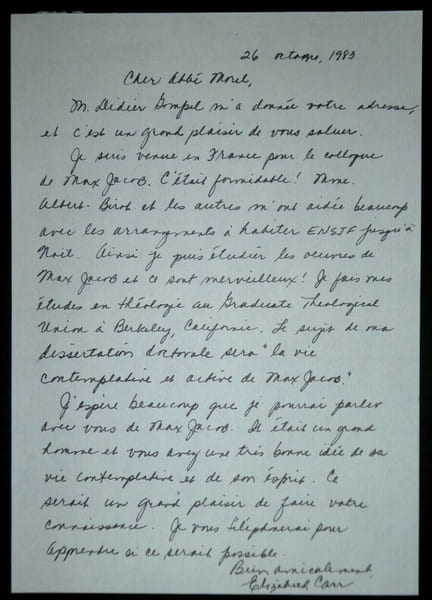 26 octobre, 1983
Cher Abbé Morel,
M. Didier Gompel m'a donnée votre adresse,
et c'est un grand plaisir de vous saluer.
Je suis venue en France pour le colloque
de Max Jacob. C'était formidable! Mme.
Albert-Birot et les autres m'ont aidée beaucoup
avec les arrangements à habiter ENSJF jusqu'à
Noël. Ainsi je puis étudier les oeuvres de
Max Jacob et ce sont merveilleux! Je fais mes
études en théologie au Graduate Theological
Union à Berkeley, Californie. Le sujet de ma
dissertation doctorale sera "la vie
contemplative et active de Max Jacob."
J'espère beaucoup que je pourrai parler
avec vous de Max Jacob. Il était un grand
homme et vous avez une très bonne idée de sa
vie contemplative et de son ésprit. Ce
serait un grand plaisir de faire votre
connaissance. Je vous téléphonerai pour
apprendre si ce serait possible.
Bien amicalement,
Elizabeth Carr